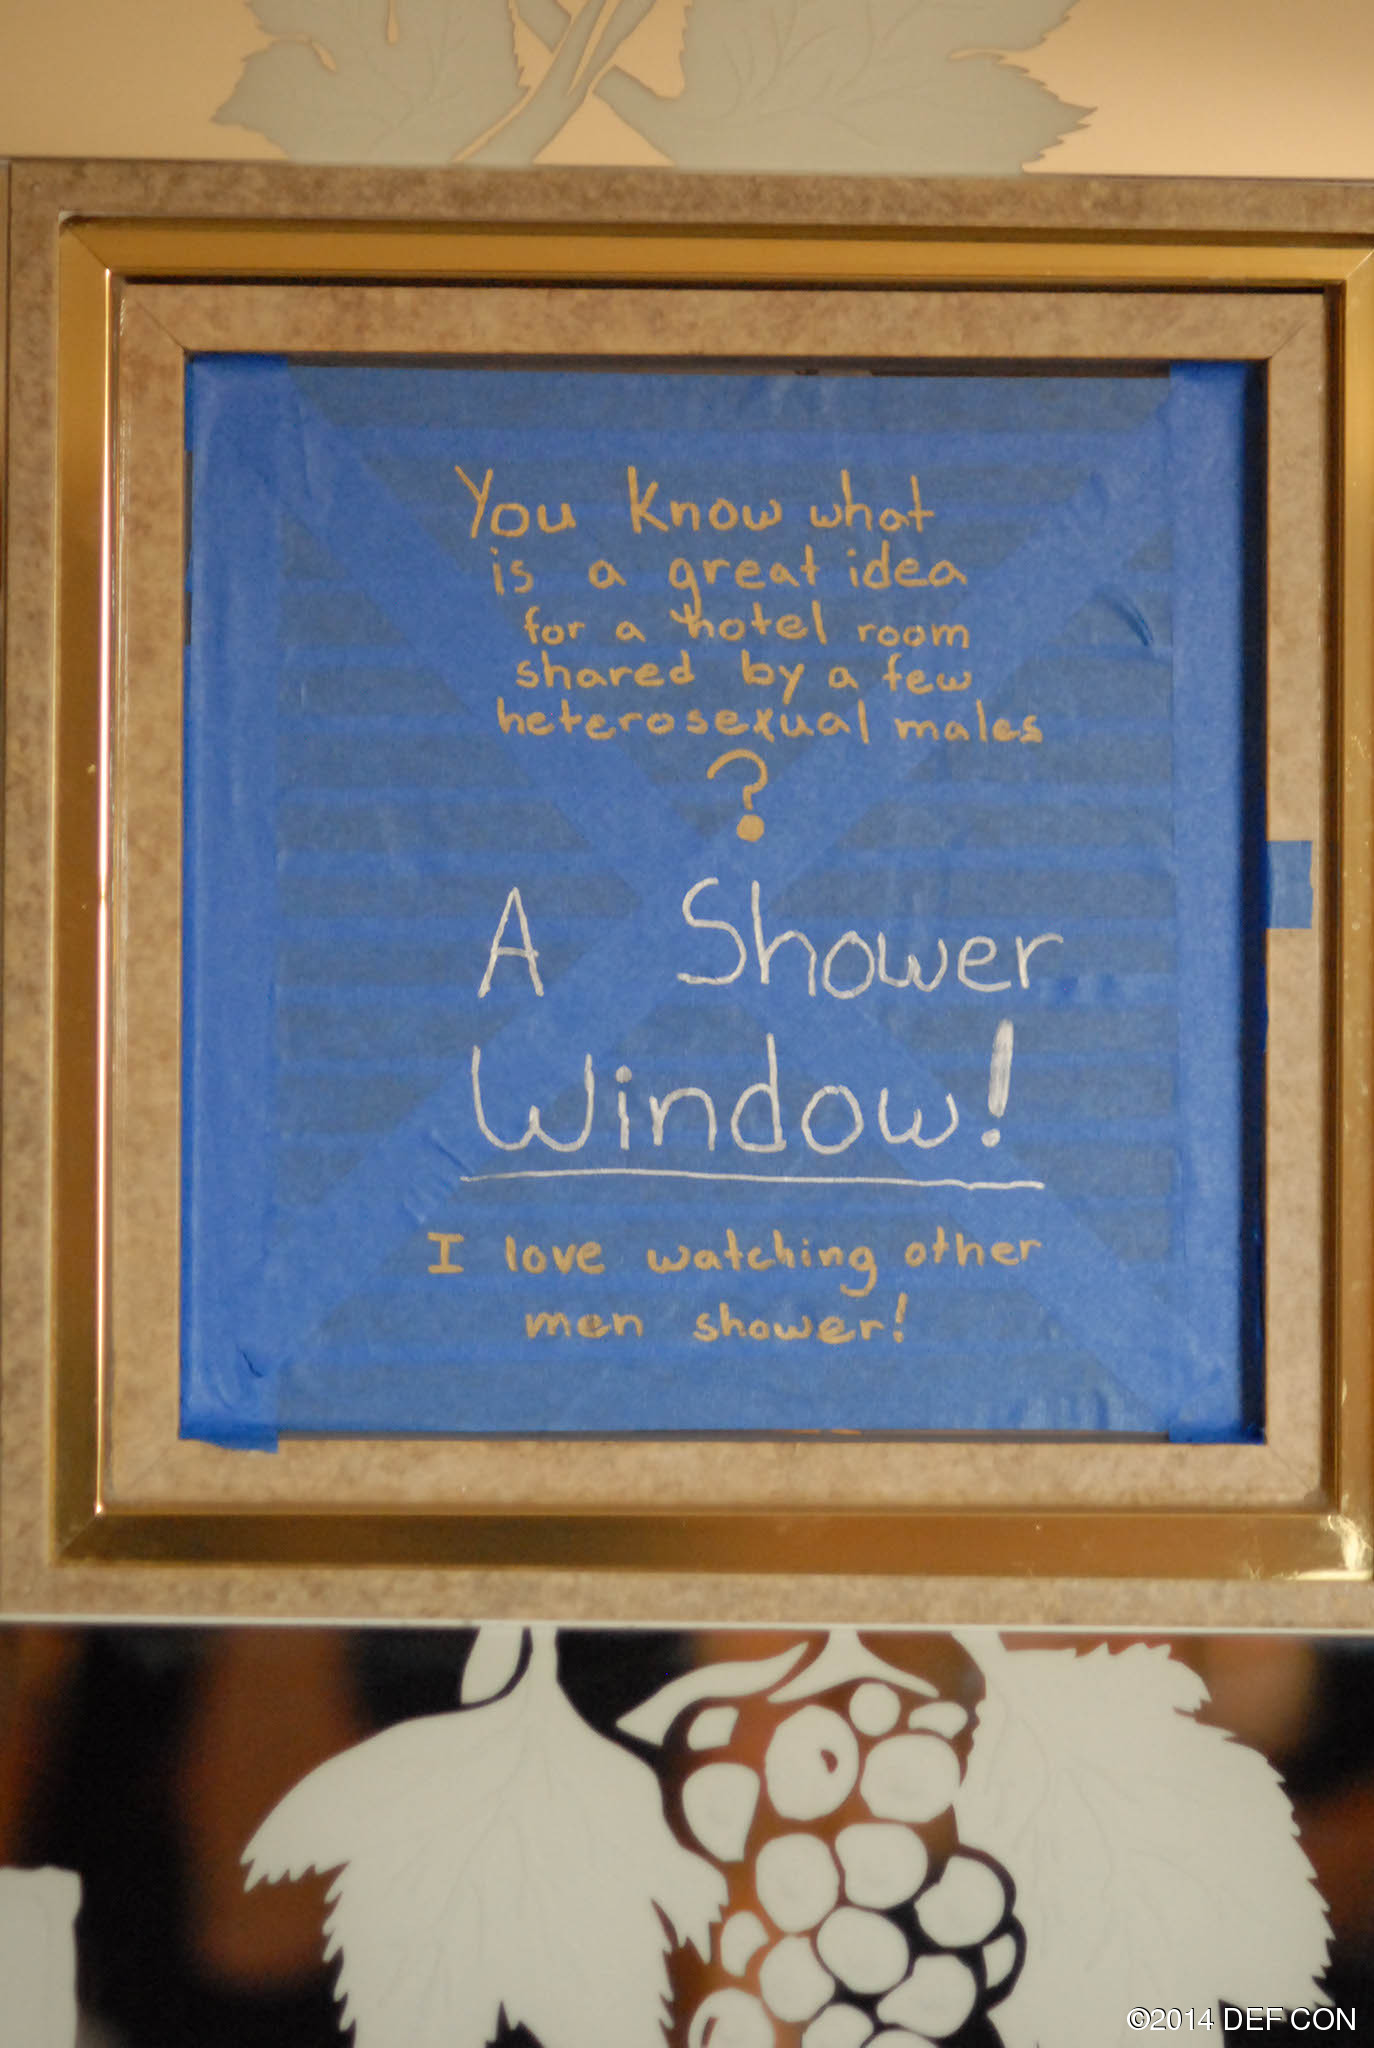 You know what
is a great idea
for a hotel room
shared by a few
heterosexual males
?
A Shower
Window!
I love watching other
men shower!
©2014 DEF CON